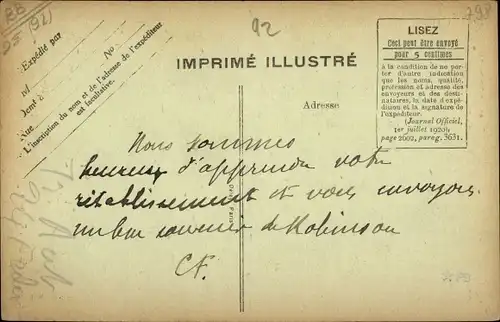 92
IMPRIMÉ ILLUSTRÉ
Adresse
LISEZ
Ceci peut être envoyé
pour 5 centimes
à la condition de ne por-
ter d'autre indication
que les noms, qualité,
profession et adresse des
envoyeurs et des desti-
nataires, la date d'expé-
dition et la signature de
l'expéditeur.
(Journal Officiel,
1er juillet 1920,
page 2602, parag. 3631.
Expédié par
No
Rue
L'inscription du nom et de l'adresse de l'expéditeur
est facultative.
Nous sommes
heureux d'apprendre votre
rétablissement et vous envoyons
un bon souvenir de Robinson
C.F.